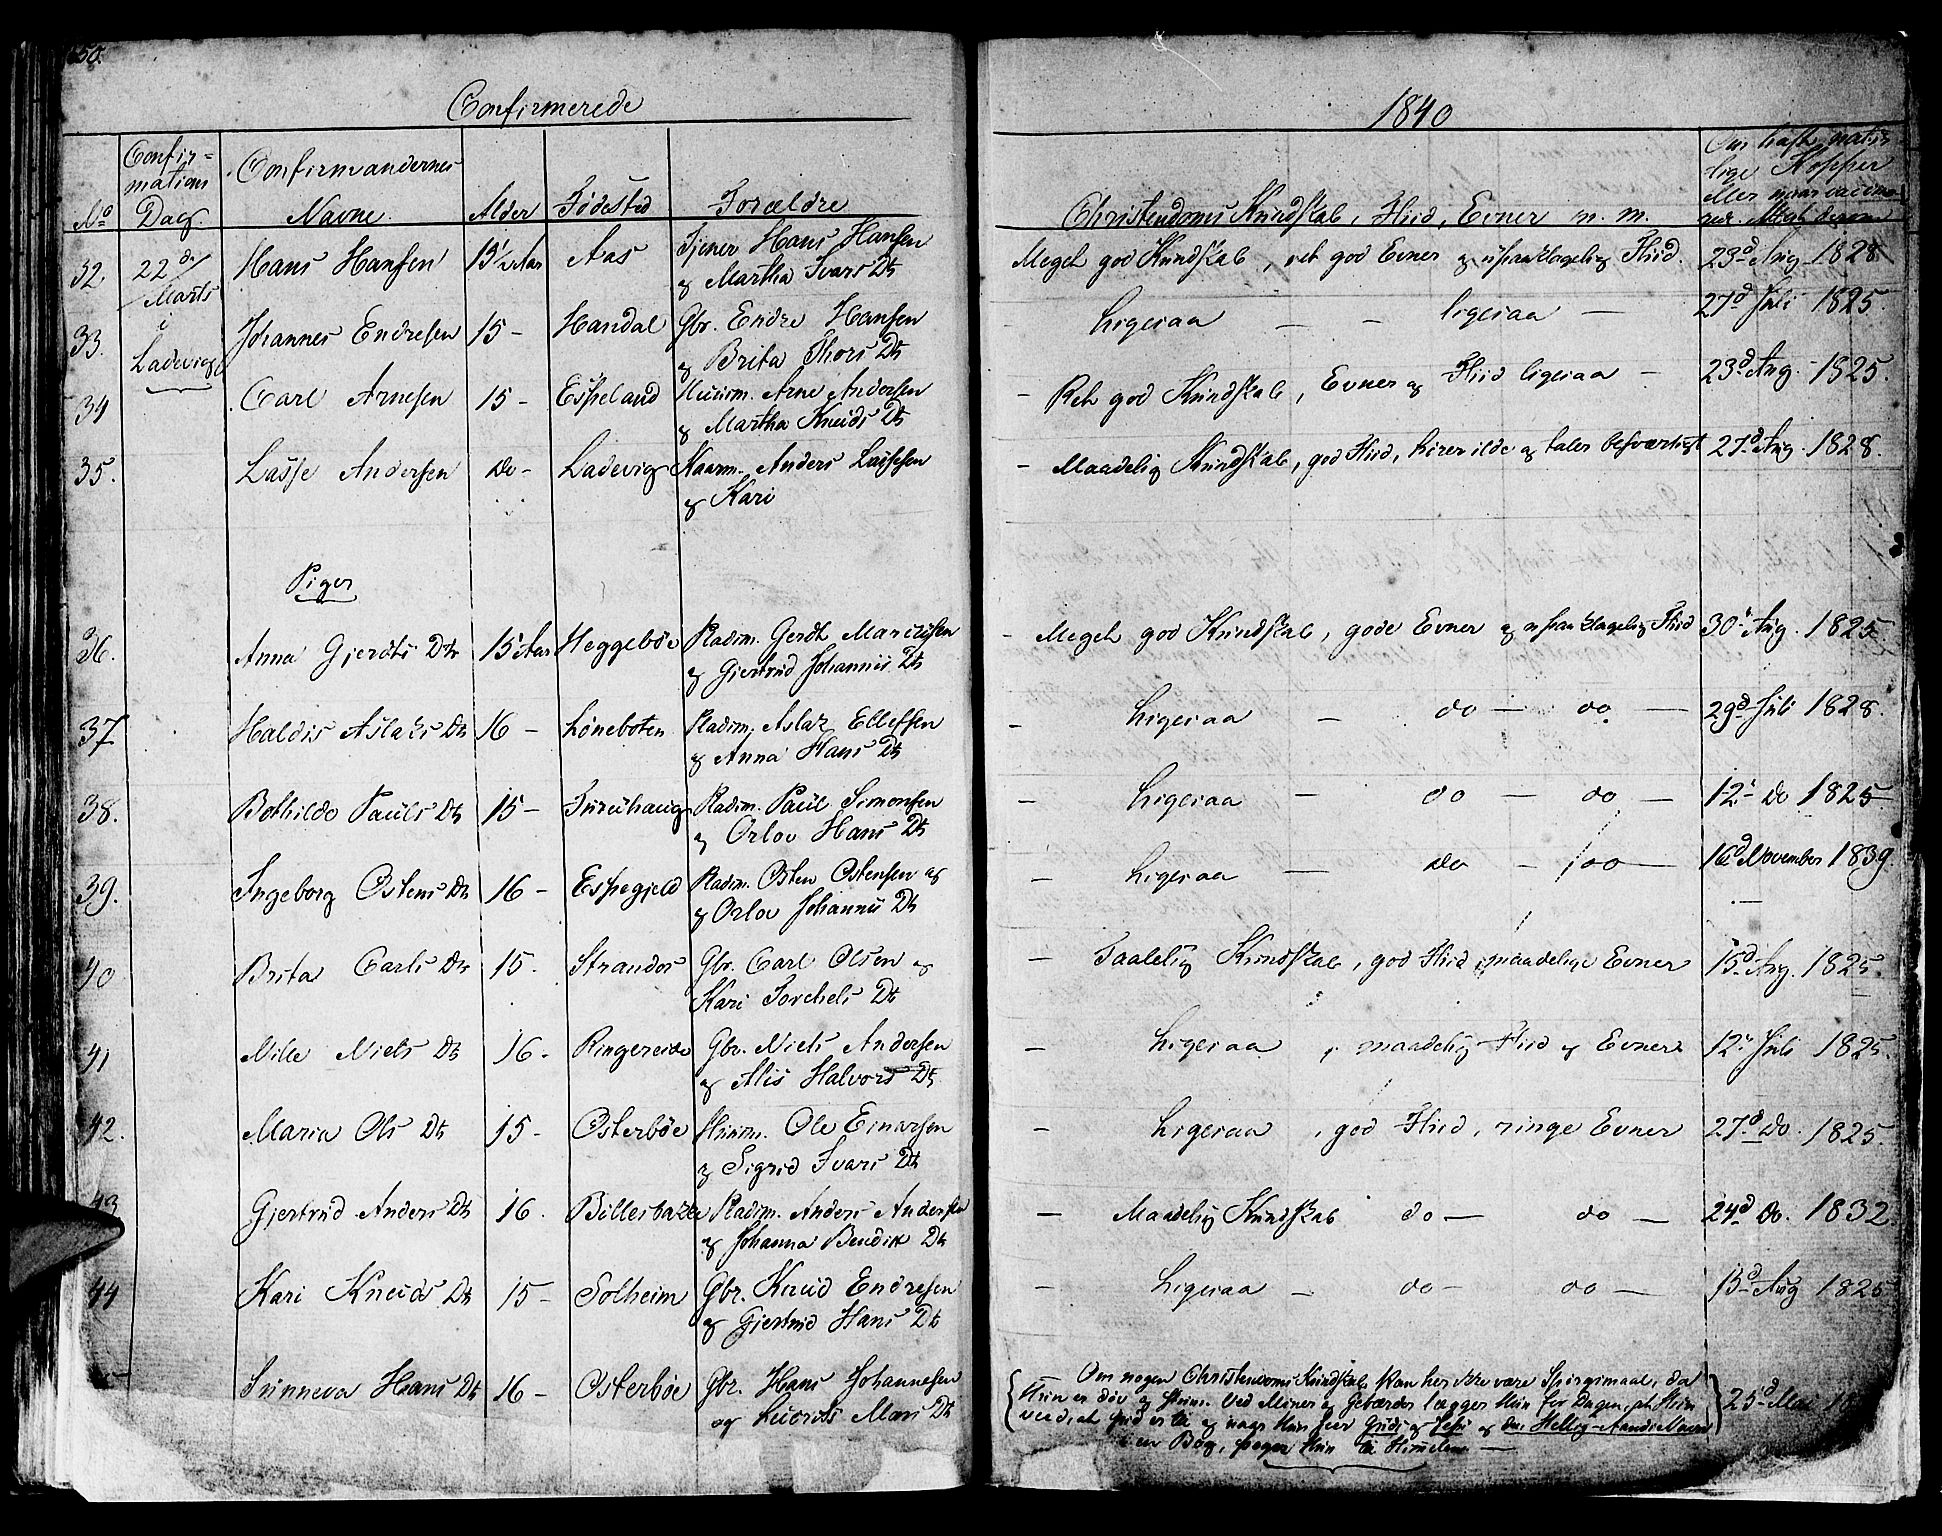 150.
Confirmerede
1840
No
Confir-
mations
Dag.
Confirmandernes
Navne.
Alder
Fødested
Forældre
Christendoms Kundskab, Flid, Evner m. m.
Om havt natur-
lige Kopper
eller
32. 22de/Marts Hans Hansen 15½ Aar Aas Tjener Hans Hansen
og Martha Ivars Dt
Meget god Kundskab, ret god Evner og upaaklagelig Flid. 23d Aug. 1828
i
Ladevig
33. Johannes Endresen 15 - Handal Gbr. Endre Hansen
og Brita Thors Dt
- Ligesaa - - ligesaa - 27d Juli 1825.
34 Carl Arnesen 15 - Espeland Huusm. Arne Andersen
og Martha Knuds Dt
- Ret god Kundskab, Evner og Flid ligesaa - 23d Aug. 1825.
35. Lasse Andersen do - Ladevig Anders Lassesen
og Kari
- Maadelig Kundskab, god Flid, hører ilde og taler besværligt 27d Aug. 1828.
Piger
36. Anna Gjerdts Dtr 15 Aar Heggebøe Pladsm. Gerdt Mariusen
og Giertrud Johannis Dt
- Meget god Kundskab, gode Evner og upaaklagelig Flid 30te Aug. 1825
37 Haldis Aslaks Dt 16 - Løneboten Pladsm. Aslak Ellefsen
og Anna Hans Dt
- Ligesaa - do - do - 29d Juli 1828.
38. Bothilde Pauls Dt 15 - Furuhaug Pladsm. Paul Simonsen
og Orlov Hans Dt
- Ligesaa - do - do - 12te do 1825
39. Ingeborg Ostens Dt 16 - Espegjeld Pladsm. Osten Ostensen og
og Orlov Johannis Dt
- Ligesaa - do - do - 16d November 1839.
40 Brita Carls Dt 15. Strandos Gbr. Carl Olsen og
Kari Torchels Dt
- Taalelig Kundskab, god Flid, maadelige Evner 15d Aug. 1825.
41 Nille Niels Dt 16 - Ringereide Gbr. Niels Andersen
og Alis Halvors Dt
- Ligesaa, maadelig Flid og Evner 12te Juli 1825.
42. Maria Ols Dt 15 - Osterbøe Huusm. Ole Einarsen
og Sigrid Ivars Dt
- Ligesaa, god Flid, ringe Evner 27d do. 1825.
43 Giertrud Anders Dt 16. Billesbakke Pladsm. Anders Andersen
og Johanna Bendix Dt
- Maadelig Kundskab do - do - 24d do. 1832.
44 Kari Knuds Dt 15 - Solheim Gbr. Knud Endresen
og Giertrud Hans Dt
- Ligesaa - do - do - 13d Aug 1825
Sunneva Hans Dt 16 - Osterbøe Gbr. Hans Johannesen
og Mons Dt
Om nogen Christendoms Kundskab kan her ikke være Spørgsmaal, da
Hun er døv og stum. Ved Miner og Gebærder lægger Hun for Dagen, at Hun
veed, at Gud er til og naar Hun seer Guds og Jesu og den Hellig-Aands Navn
i en Bog, peger Hun til Himelen - 25d Mai